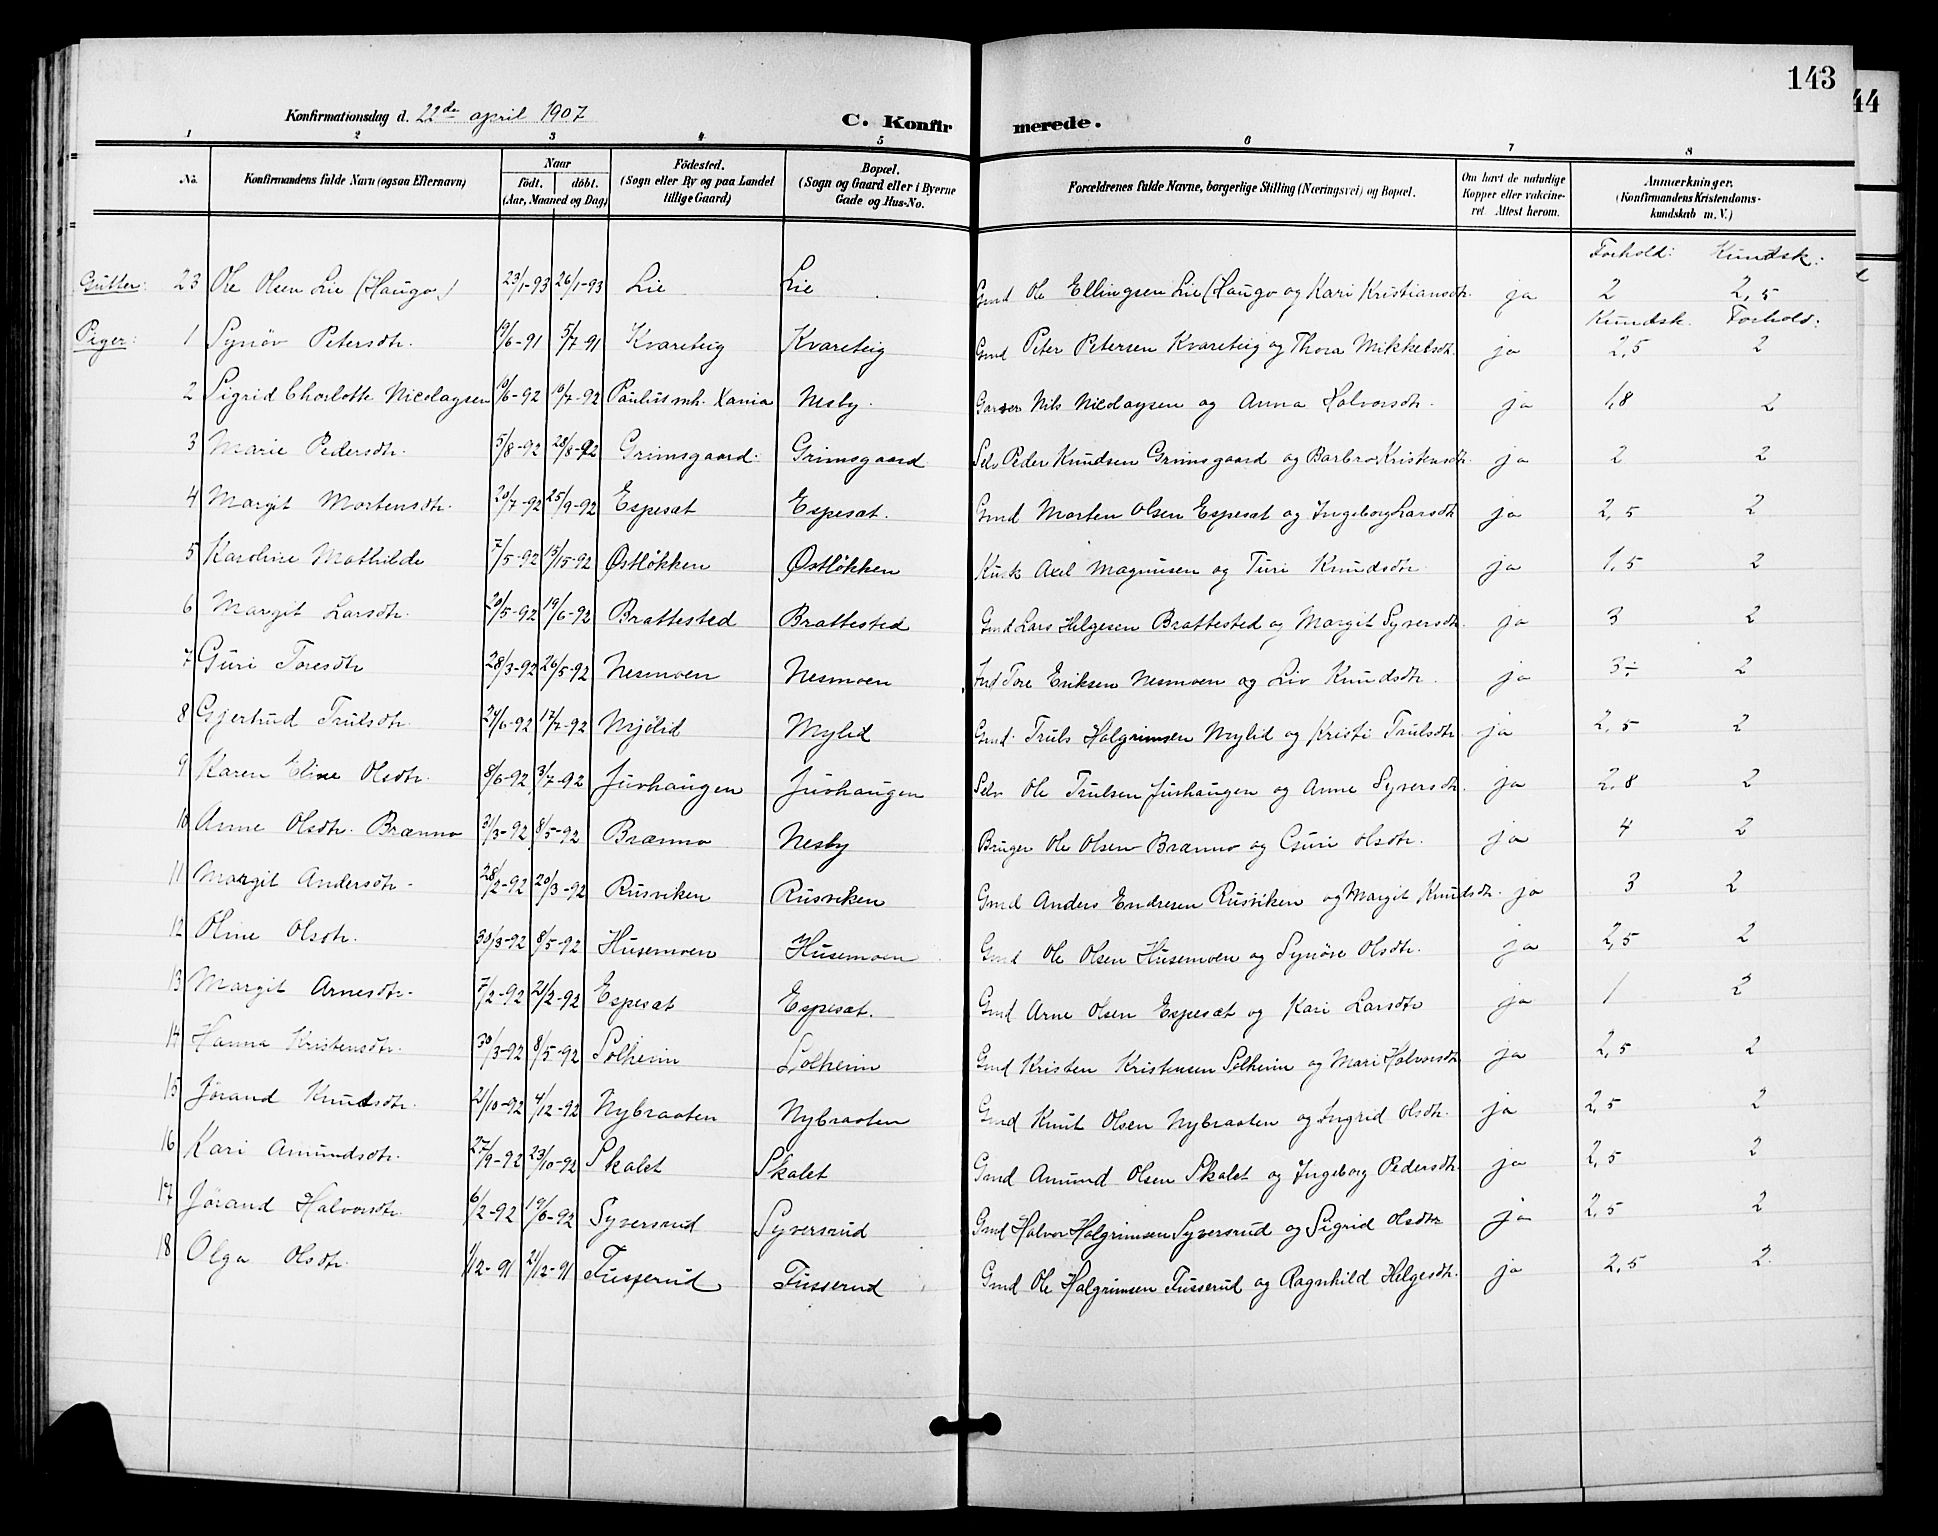 143
44
Konfirmationsdag d. 22de april 1907
C. Konfirmerede.
1 2 3 4 5 6 7 8
No. Konfirmandens fulde Navn (ogsaa Efternavn) Naar født. døbt. (Aar, Maaned og Dag) Fødested. (Sogn eller By og paa Landet tillige Gaard) Bopæl. (Sogn og Gaard eller i Byerne Gade og Hus-No. Forældrenes fulde Navne, borgerlige Stilling (Næringsvei) og Bopæl. Om havt de naturlige Kopper eller vakcineret Attest herom. Anmærkninger. (Konfirmandens Kristendomskundskab m. V.)
Forhold: Kundsk.:
Gutter: 23 Ole Olsen Lie (Haugo) 23/1-93 26/1-93 Lie Lie Gmd Ole Ellingsen Lie (Haugo og Kari Kristiansdtr. ja 2 2,5
Kundsk. Forhold:
Piger: 1 Synøv Petersdtr. 19/6-91 5/7-91 Kvareteig Kvareteig Gmd Peter Petersen Kvareteig og Thora Mikkelsdtr. ja 2,5 2
2 Sigrid Charlotte Nicolaysen 19/6-92 19/7-92 Paulus mh. Xania Nesby. Garver Nils Nicolaysen og Anna Halvorsdtr. ja 1,8 2
3 Marie Pedersdtr. 5/8-92 28/8-92 Grimsgaard. Grimsgaard Selv Peder Knudsen Grimsgaard og Barbro Kristensdtr. ja 2 2
4 Margit Mortensdtr. 20/7-92 25/9-92 Espesæt Espesæt. Gmd Morten Olsen Espesæt og Ingeborg Larsdtr ja 2,5 2
5 Karoline Mathilde 7/5-92 15/15-92 Østløkken Østløkken Kusk Axel Magnusen og Turi Knudsdtr. ja 1,5 2
6 Margit Larsdtr. 20/5-92 19/6-92 Brattested Brattested Gmd Lars Helgesen Brattested og Margit Syversdtr. ja 3 2
7 Guri Toresdtr 28/3-92 26/5-92 Nesmoen Nesmoen Ind Tore Eriksen Nesmoen og Liv Knudsdtr. ja 3÷ 2
8 Gjertrud Trulsdtr. 24/6-92 17/7-92 Mjølid Mylid Gmd. Truls Halgrimsen Mylid og Kristi Trulsdtr ja 2,5 2
9 Karen Eline Olsdtr. 8/6-92 3/7-92 Juvhaugen Juvhaugen Selv Ole Trulsen Juvhaugen og Anne Syversdtr. ja 2,8 2
10 Anne Olsdtr. Brænno 31/3-92 8/5-92 Brænno Nesby Bruger Ole Olsen Brænno og Guri Olsdtr. ja 4 2
11 Margit Andersdtr. 28/2-92 20/3-92 Rusviken Rusviken Gmd Anders Endresen Rusviken og Margit Knudsdtr. ja 3 2
12 Oline Olsdtr. 30/3-92 8/5-92 Husemoen Husemoen Gmd Ole Olsen Husemoen og Synøve Olsdtr. ja 2,5 2
13 Margit Arnesdtr. 7/2-92 21/2-92 Espesæt Espesæt. Gmd Arne Olsen Espesæt og Kari Larsdtr ja 1 2
14 Hanna Kristensdtr. 30/3-92 8/5-92 Solheim Solheim Gmd Kristen Kristensen Solheim og Mari Halvorsdtr ja 2,5 2
15 Jørand Knudsdtr. 21/10-92 4/12-92 Nybraaten Nybraaten Gmd Knut Olsen Nybraaten og Ingrid Olsdtr. ja 2,5 2
16 Kari Amundsdtr. 27/9-92 23/10-92 Skalet Skalet Gmd Amund Olsen Skalet og Ingeborg Pedersdtr. ja 2,5 2
17 Jørand Halvorsdtr 6/2-92 19/6-92 Syversrud Syversrud Gmd Halvor Halgrimsen Syversrud og Sigrid Olsdtr ja 2,5 2
18 Olga Olsdtr. 1/12-91 21/12-91 Tusserud Tusserud Gmd Ole Halgrimsen Tusserud og Ragnhild Helgesdtr. ja 2,5 2.